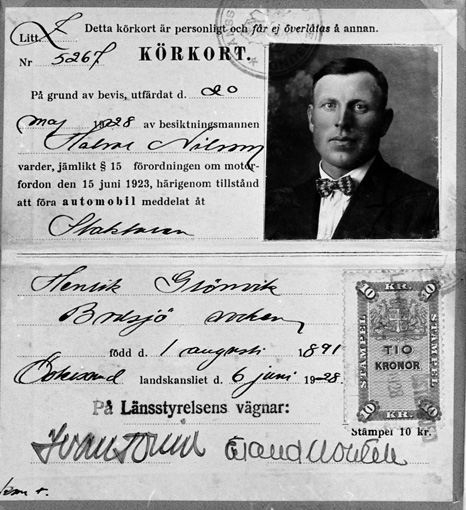 Detta körkort är personligt och får ej överlåtas å annan.
Litt. Z
Nr 5267
KÖRKORT.
På grund av bevis, utfärdat d. 20
maj 1928 av besiktningsmannen
Halvar Nilsson
varder, jämlikt § 15 förordningen om motor-
fordon den 15 juni 1923, härigenom tillstånd
att föra automobil meddelat åt
Henrik Grönvik
Brksjö socken
född d. 1 augusti 1891
Östersund landskansliet d. 6 juni 1928.
På Länsstyrelsens vägnar:
10 KR. 10
STÄMPEL STÄMPEL
TIO
KRONOR
10 KR. 10
Stämpel 10 kr.